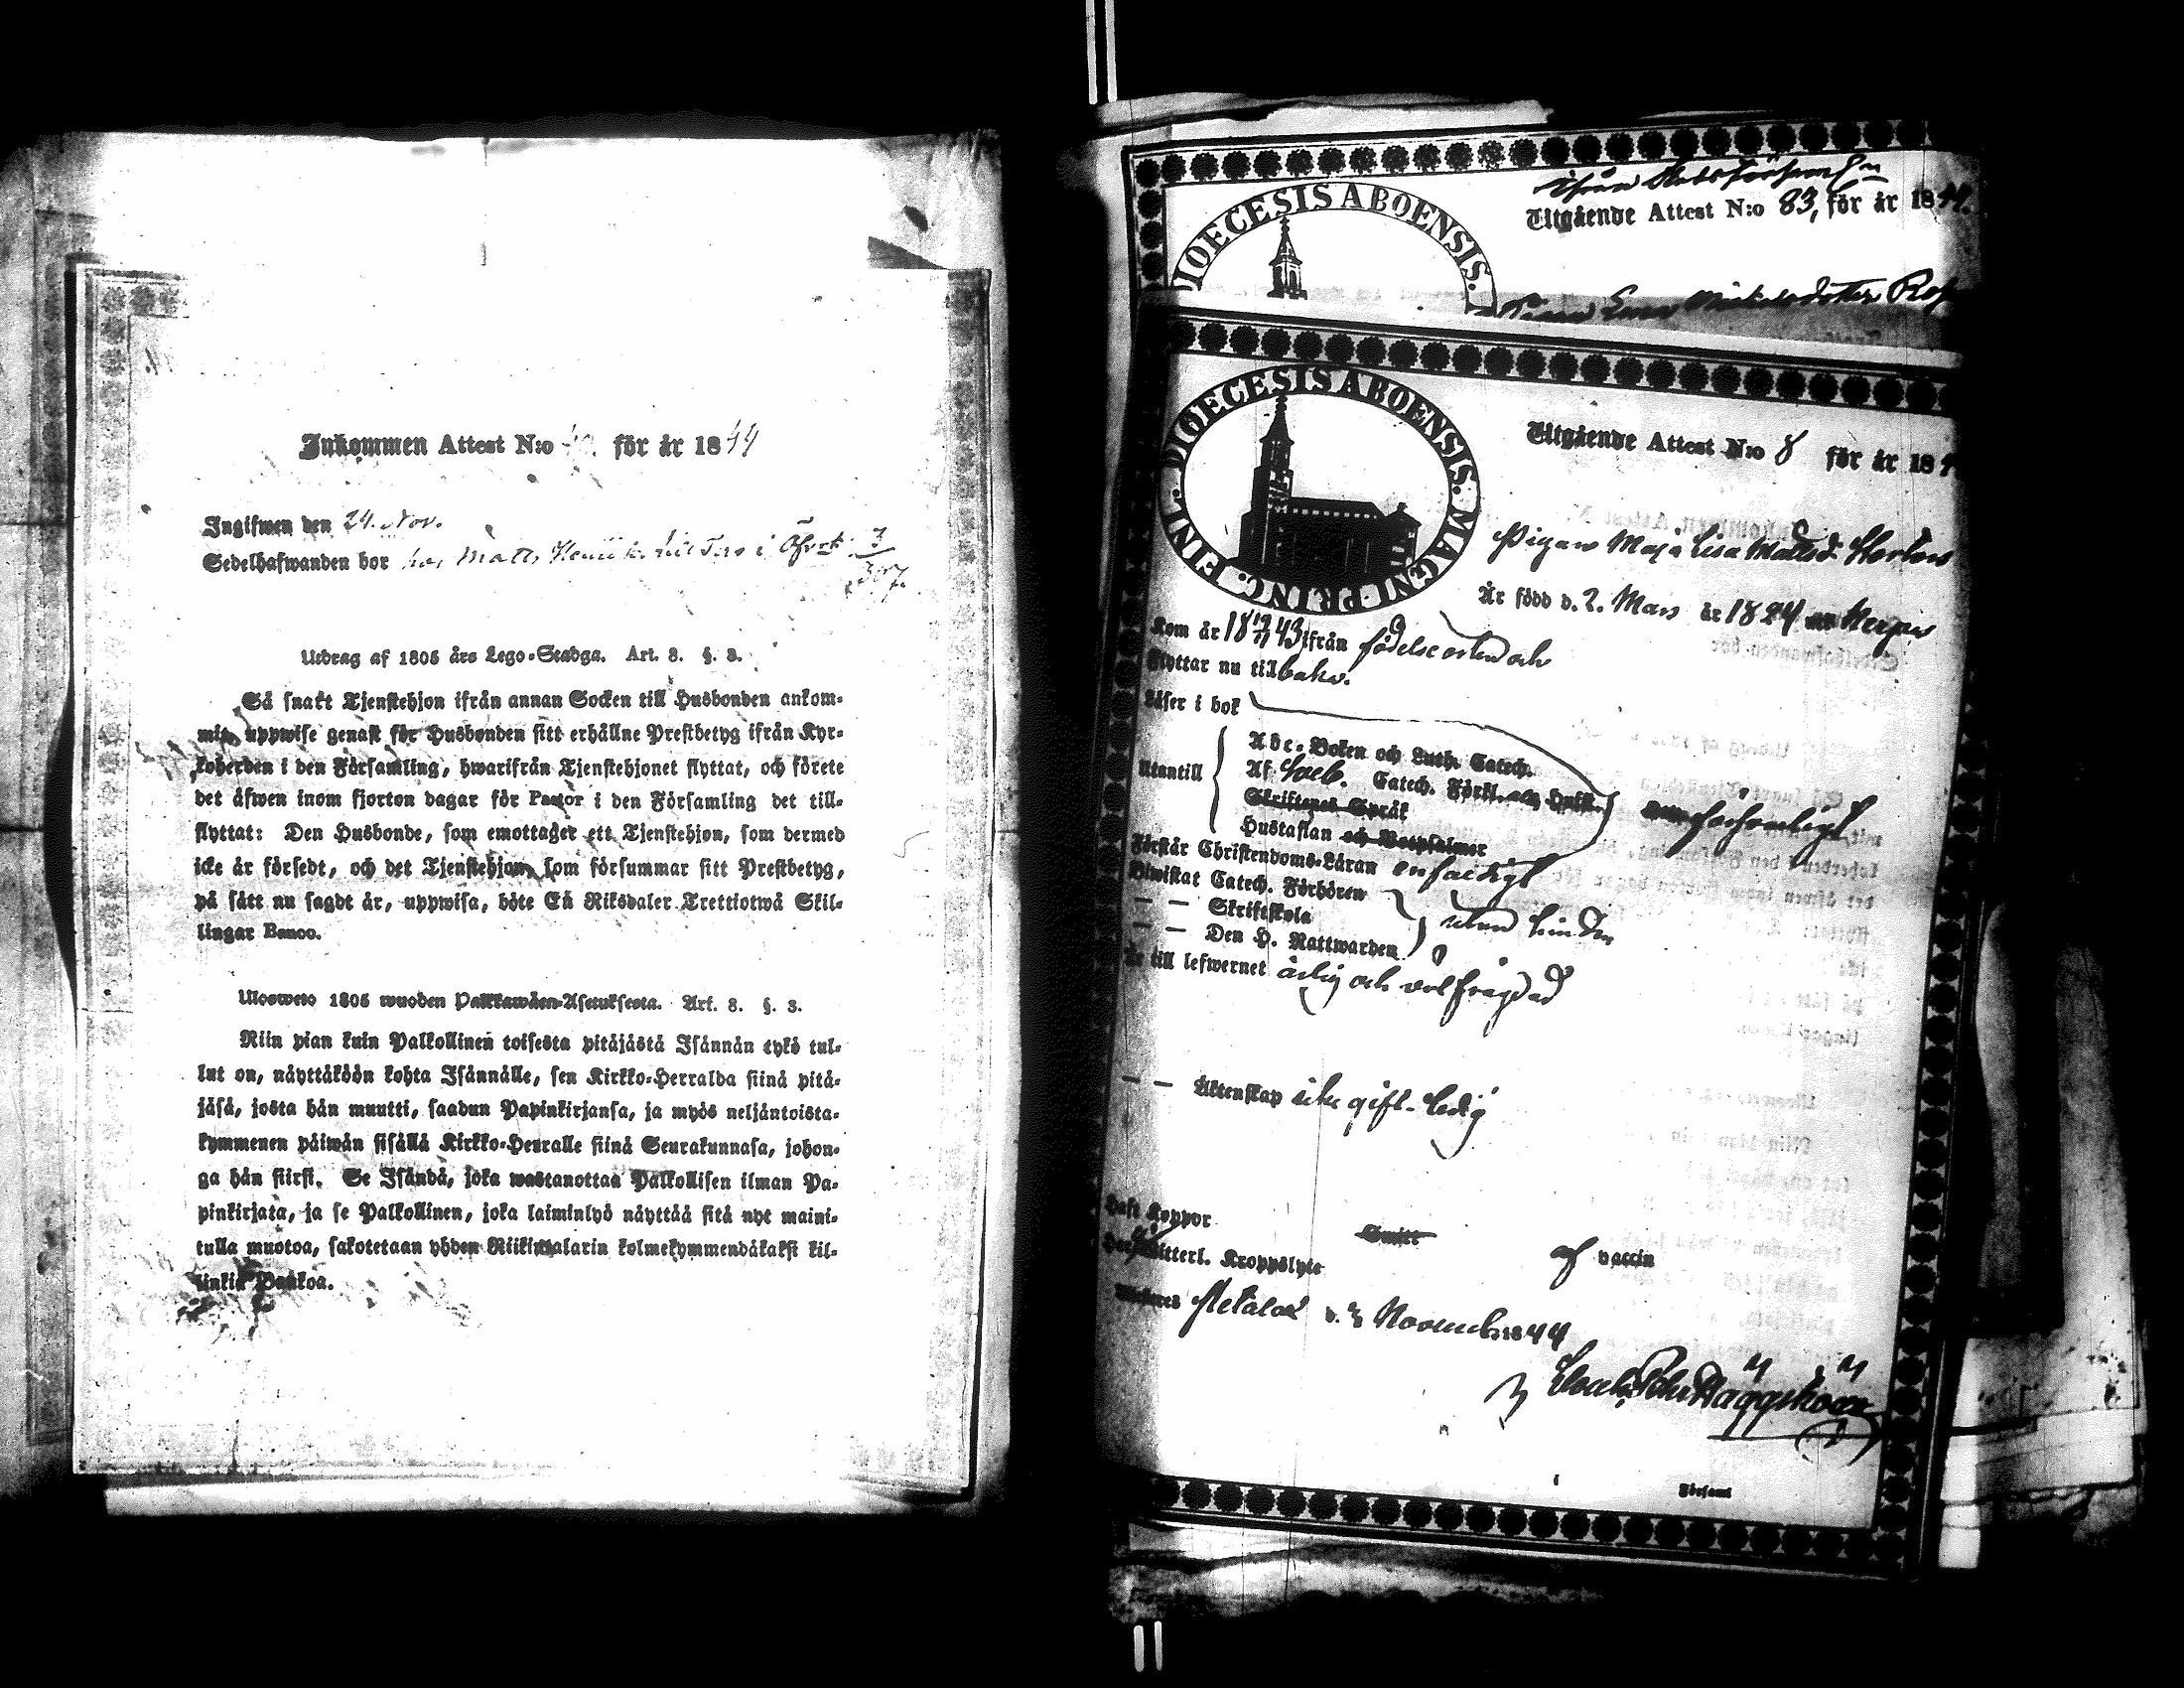 Inkommen Attest N:o för år 1844
Ingifwen den 24. Nov.
Sedelhafwanden bor hos Matts Henrik i 3
307.
Utdrag af 1805 års Lego-Stadga. Art. 8. §. 3.
Så snart Tjenstehjon ifrån annan Socken till Husbonden ankom-
mit, uppwise genast för Husbonden sitt erhållne Prestbetyg ifrån Kyr-
koherden i den Församling, hwarifrån Tjenstehjonet flyttat, och förete
det äfwen inom fjorton dagar för Pastor i den Församling det till-
flyttat: Den Husbonde, som emottager ett Tjenstehjon, som dermed
icke är försedt, och det Tjenstehjon, som försummar sitt Prestbetyg,
på sätt nu sagdt är, uppwisa, böte En Riksdaler Trettiotwå Skil-
lingar Banco.
Uloswето 1805 wuoden Palkkawäen-Asetuksesta. Art. 8. §. 3.
Niin pian kuin Palkollinen toisesta pitäjästä Isännän tykö tul-
lut on, näyttäköön kohta Isännälle, sen Kirkko-Herralda siinä pitä-
jäsä, josta hän muutti, saadun Papinkirjansa, ja myös neljäntoista-
kymmenen päiwän sisällä Kirkko-Herralle siinä Seurakunnasa, johon-
ga hän siirsi. Se Isändä, joka wastanottaa Palkollisen ilman Pa-
pinkirjata, ja se Palkollinen, joka laiminlyö näyttää sitä nyt maini-
tulla muotoa, sakotetaan yhden Riikintalarin kolmekymmendäkaksi kil-
linkiä Bankoa.
DIOECESIS ABOENSIS.
Utgående Attest N:o 83, för år 1844.
Pigan Michelsdotter
FINL. DIOECESIS ABOENSIS. MAGNI PRINC.
Utgående Attest N:o 8 för år 18
Pigan Maja Lisa Mattsd:r
Är född d. 2. Mars år 1824
Kom år 18 43 ifrån födelseorten och
Flyttar nu tillbaka.
Läser i bok
Utantill
Abc-Boken och Luth. Catech.
Af Sveb. Catech. Förkl. och Hust.
Skriftenes Språk
Hustaflan och Botpsalmer
försvarligt
Förstår Christendoms-Läran enfaldigt
Biwistat Catech. Förhören
— — Skriftskola
— — Den H. Nattwarden
utan hinder
Är till lefwernet ärlig och välfrägdad
— — Äktenskap icke gift. ledig
Haft Koppor Smitt af vaccin
Har Witterl. Kroppslyte
Metala d. 3 Novemb. 1844
Häggström
Församl